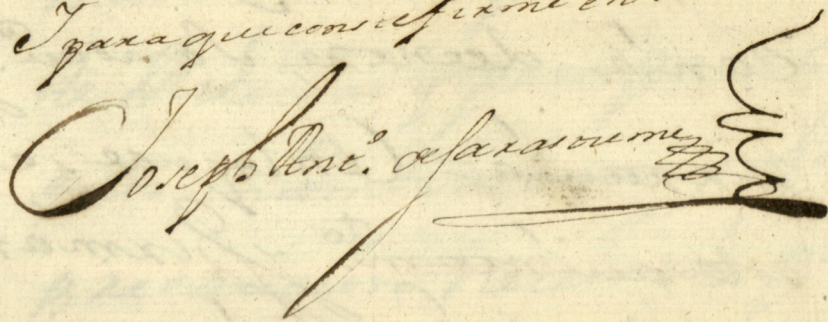 Y para que conste firme en
Joseph Antº. de Sarasoume